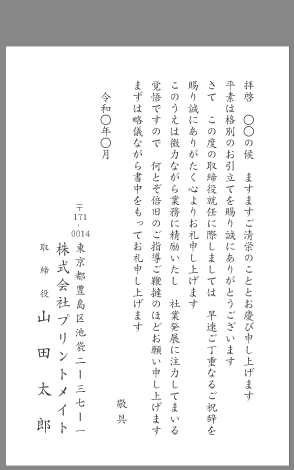 拝啓　〇〇の候　ますますご清栄のこととお慶び申し上げます
平素は格別のお引立てを賜り誠にありがとうございます
さて　この度の取締役就任に際しましては　早速ご丁重なるご祝辞を
賜り誠にありがたく心よりお礼申し上げます
このうえは微力ながら業務に精励いたし　社業発展に注力してまいる
覚悟ですので　何とぞ倍旧のご指導ご鞭撻のほどお願い申し上げます
まずは略儀ながら書中をもってお礼申し上げます
敬具
令和〇年〇月
〒171-0014
東京都豊島区池袋二ー三七ー一
株式会社プリントメイト
取締役　山田太郎